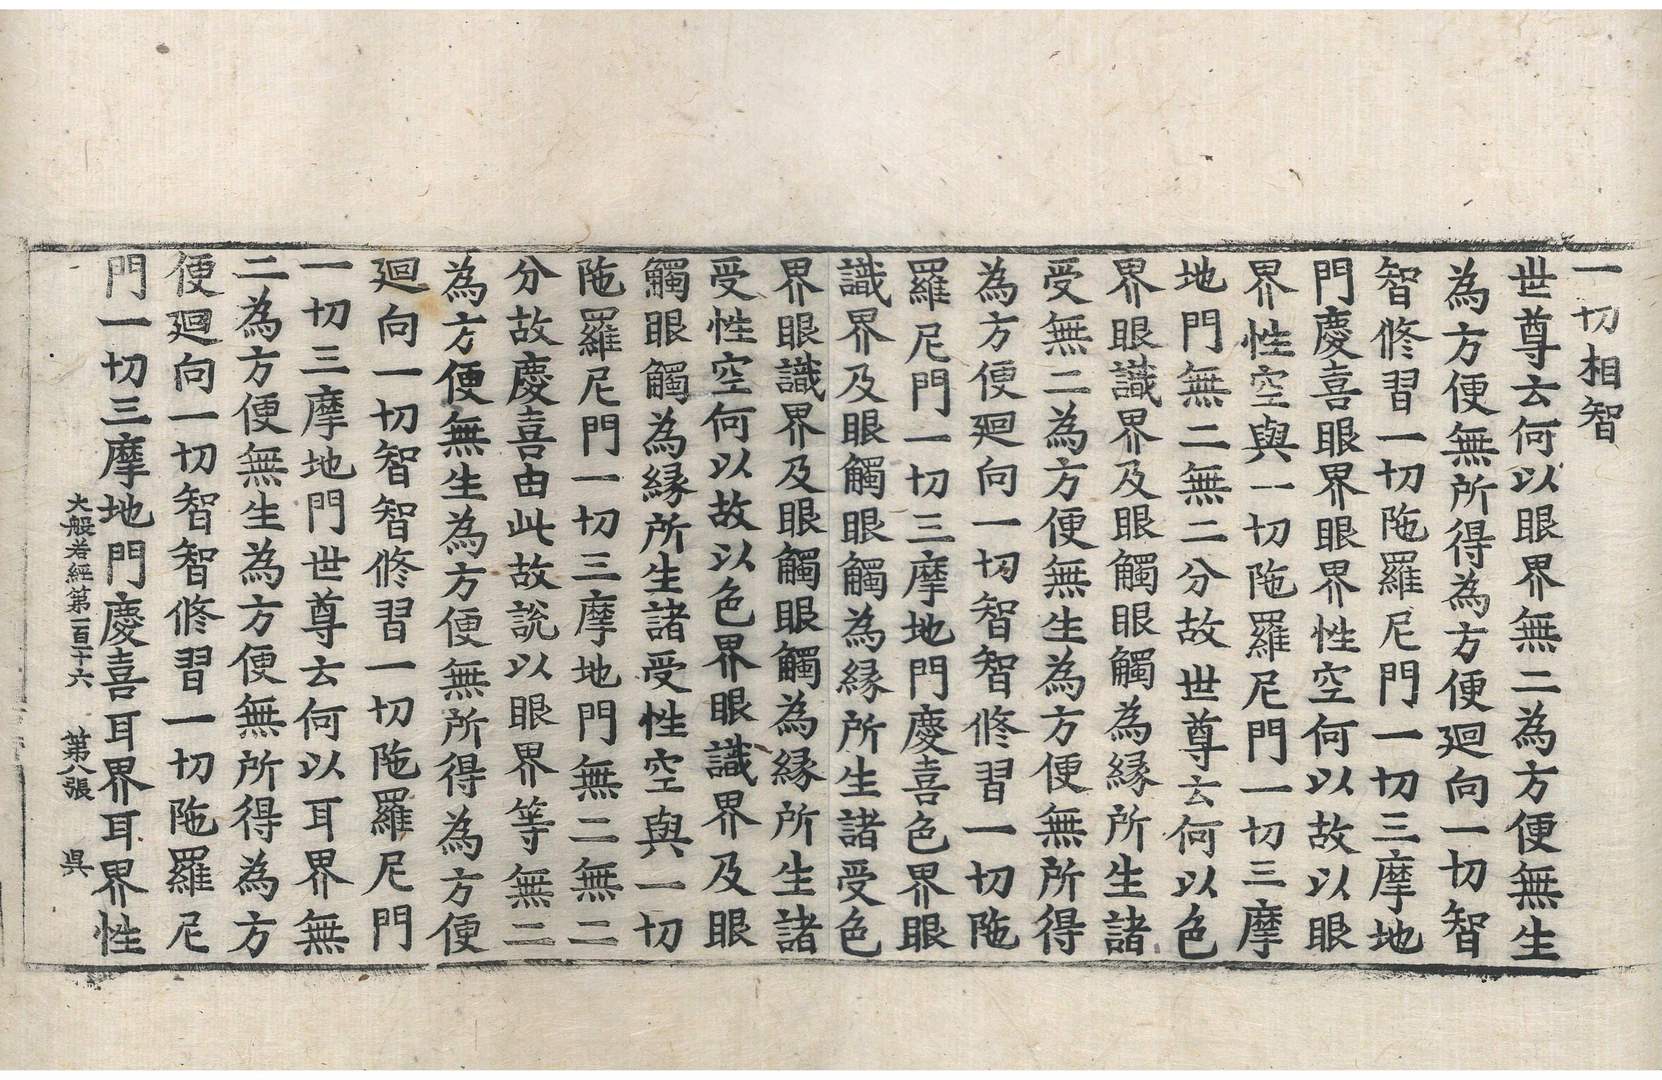 一切相智
世尊云何以眼界無二為方便無生
為方便無所得為方便廻向一切智
智修習一切陁羅尼門一切三摩地
門慶喜眼界眼界性空何以故以眼
界性空與一切陁羅尼門一切三摩
地門無二無二分故世尊云何以色
界眼識界及眼觸眼觸為緣所生諸
受無二為方便無生為方便無所得
為方便廻向一切智智修習一切陁
羅尼門一切三摩地門慶喜色界眼
識界及眼觸眼觸為緣所生諸受色
界眼識界及眼觸眼觸為緣所生諸
受性空何以故以色界眼識界及眼
觸眼觸為緣所生諸受性空與一切
陁羅尼門一切三摩地門無二無二
分故慶喜由此故說以眼界等無二
為方便無生為方便無所得為方便
廻向一切智智修習一切陁羅尼門
一切三摩地門世尊云何以耳界無
二為方便無生為方便無所得為方
便廻向一切智智修習一切陁羅尼
門一切三摩地門慶喜耳界耳界性
大般若經第一百一十六 第八張 昃